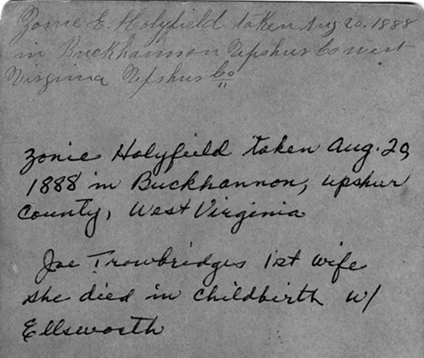 Zonie E. Holyfield taken Aug 20. 1888
in Buckhannon Upshur Co west
Virginia Upshur Co
"
Zonie Holyfield taken Aug. 20,
1888 in Buckhannon, Upshur
County, West Virginia
Joe Trowbridges 1st wife
she died in childbirth w/
Ellsworth